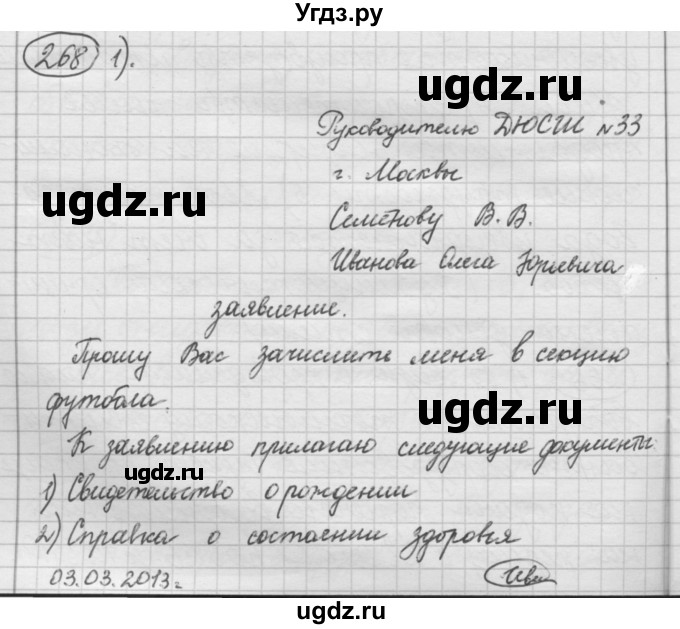 Угдз.ру
268 1).
ugdz.ru
Руководителю ДЮСШ №33
г. Москвы
ugdz.ru
Семёнову В. В.
Иванова Олега Юрьевича
заявление.
Прошу Вас зачислить меня в секцию
футбола.
ugdz.ru
К заявлению прилагаю следующие документы
ugdz.ru
1) Свидетельство о рождении
2) Справка о состоянии здоровья
03.03.2013г. Ива
ugdz.ru